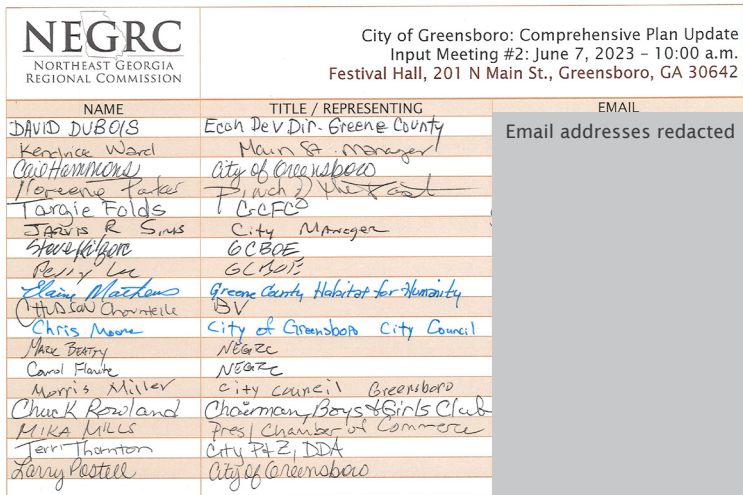 NEGRC
NORTHEAST GEORGIA
REGIONAL COMMISSION
City of Greensboro: Comprehensive Plan Update
Input Meeting #2: June 7, 2023 – 10:00 a.m.
Festival Hall, 201 N Main St., Greensboro, GA 30642
NAME TITLE / REPRESENTING EMAIL
DAVID DUBOIS Econ Dev Dir. Greene County Email addresses redacted
Kendrice Ward Main St. Manager
Cail Hammons City of Greensboro
Noreene Parker Pinch of the Past
Targie Folds GCFC
JARVIS R SIMS City Manager
Steve Kilgore GCBOE
Perry GCBOE
Elaine Mathews Greene County Habitat for Humanity
HUDSON Chauntelle BV
Chris Moore City of Greensboro City Council
MARK BEATTY NEGRC
Carol NEGRC
Morris Miller City Council Greensboro
Chuck Rowland Chairman, Boys & Girls Club
MIKA MILLS Pres/Chamber of Commerce
Terri Thornton City P&Z, DDA
Larry Postell City of Greensboro